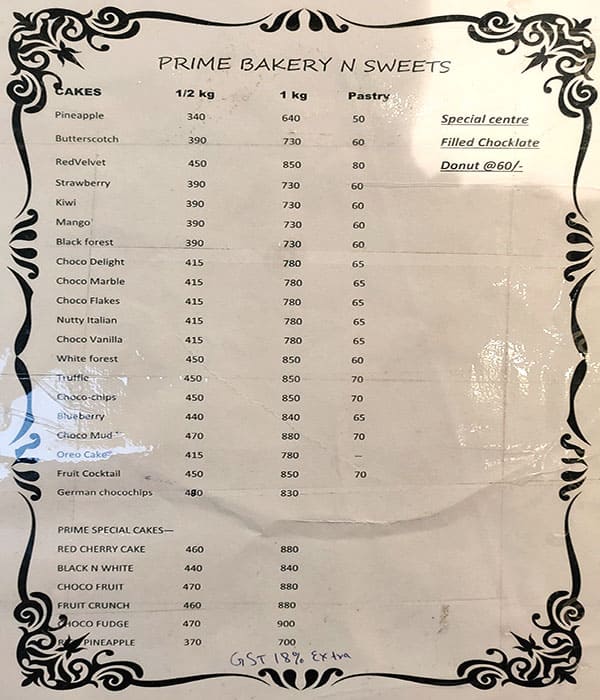 PRIME BAKERY N SWEETS
CAKES 1/2 kg 1 kg Pastry
Pineapple 340 640 50
Special centre
Butterscotch 390 730 60
Filled Chocklate
RedVelvet 450 850 80
Donut @60/-
Strawberry 390 730 60
Kiwi 390 730 60
Mango 390 730 60
Black forest 390 730 60
Choco Delight 415 780 65
Choco Marble 415 780 65
Choco Flakes 415 780 65
Nutty Italian 415 780 65
Choco Vanilla 415 780 65
White forest 450 850 60
Truffle 450 850 70
Choco-chips 450 850 70
Blueberry 440 840 65
Choco Mud 470 880 70
Oreo Cake 415 780 --
Fruit Cocktail 450 850 70
German chocochips 830
PRIME SPECIAL CAKES—
RED CHERRY CAKE 460 880
BLACK N WHITE 440 840
CHOCO FRUIT 470 880
FRUIT CRUNCH 460 880
CHOCO FUDGE 470 900
PINEAPPLE 370 700
GST 18% Extra